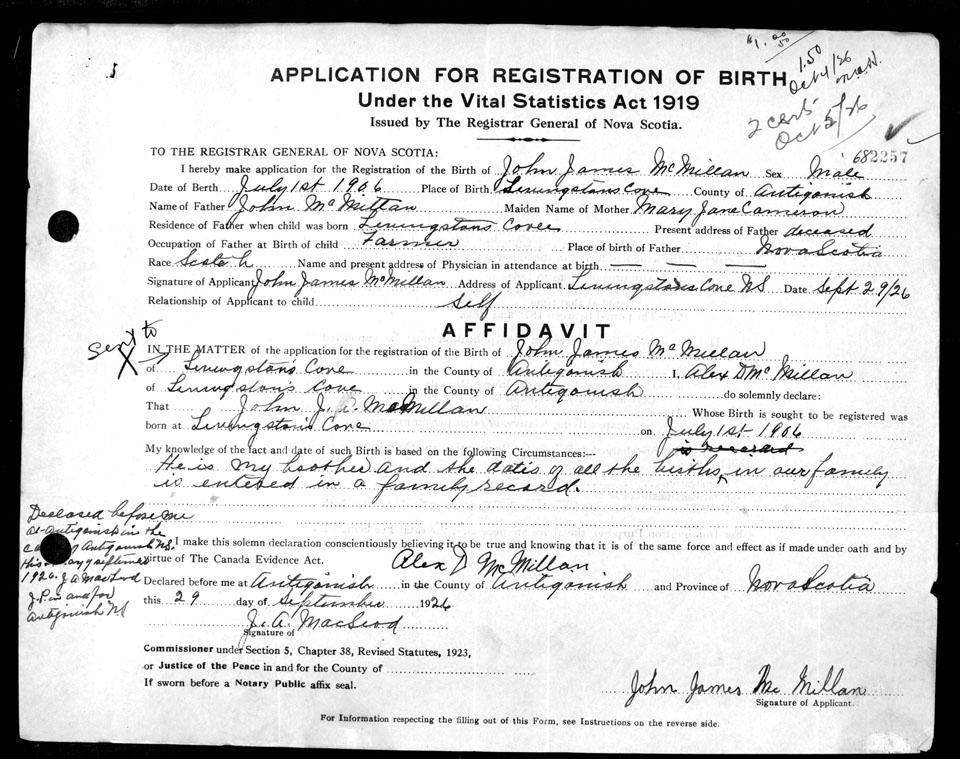 $1.00
50
1.50
Oct 4/26
2 cert
Oct 5/26
APPLICATION FOR REGISTRATION OF BIRTH
Under the Vital Statistics Act 1919
Issued by The Registrar General of Nova Scotia.
682257
TO THE REGISTRAR GENERAL OF NOVA SCOTIA:
I hereby make application for the Registration of the Birth of John James McMillan Sex Male
Date of Birth July 1st 1906 Place of Birth Livingstons Cove County of Antigonish
Name of Father John McMillan Maiden Name of Mother Mary Jane Cameron
Residence of Father when child was born Livingstons Cove Present address of Father deceased
Occupation of Father at Birth of child Farmer Place of birth of Father Nova Scotia
Race Scotch Name and present address of Physician in attendance at birth — — —
Signature of Applicant John James McMillan Address of Applicant Livingstons Cove NS Date Sept 29/26
Relationship of Applicant to child self
AFFIDAVIT
sent to
IN THE MATTER of the application for the registration of the Birth of John James McMillan
of Livingstons Cove in the County of Antigonish I, Alex D McMillan
of Livingstons Cove in the County of Antigonish do solemnly declare:
That John J. McMillan Whose Birth is sought to be registered was
born at Livingstons Cove on July 1st 1906
My knowledge of the fact and date of such Birth is based on the following Circumstances:—
He is my brother and the dates of all the births in our family
is entered in a family record.
Declared before me
at Antigonish in the
County of Antigonish NS.
this day of September
1926. J A MacLeod
J.P. in and for
Antigonish NS
And I make this solemn declaration conscientiously believing it to be true and knowing that it is of the same force and effect as if made under oath and by
virtue of The Canada Evidence Act. Alex D McMillan
Declared before me at Antigonish in the County of Antigonish and Province of Nova Scotia
this 29 day of September 1926
J. A. MacLeod
Signature of
Commissioner under Section 5, Chapter 38, Revised Statutes, 1923,
or Justice of the Peace in and for the County of
If sworn before a Notary Public affix seal.
John James Mc Millan
Signature of Applicant.
For Information respecting the filling out of this Form, see Instructions on the reverse side.